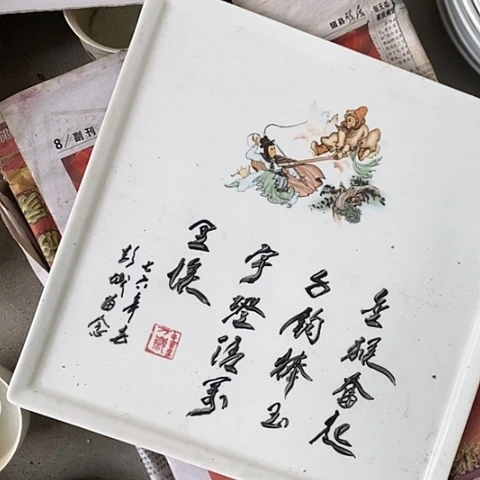 金猴奮起
千钧棒玉
宇澄清万
里埃
七六年去
彭城留念
8/副刊